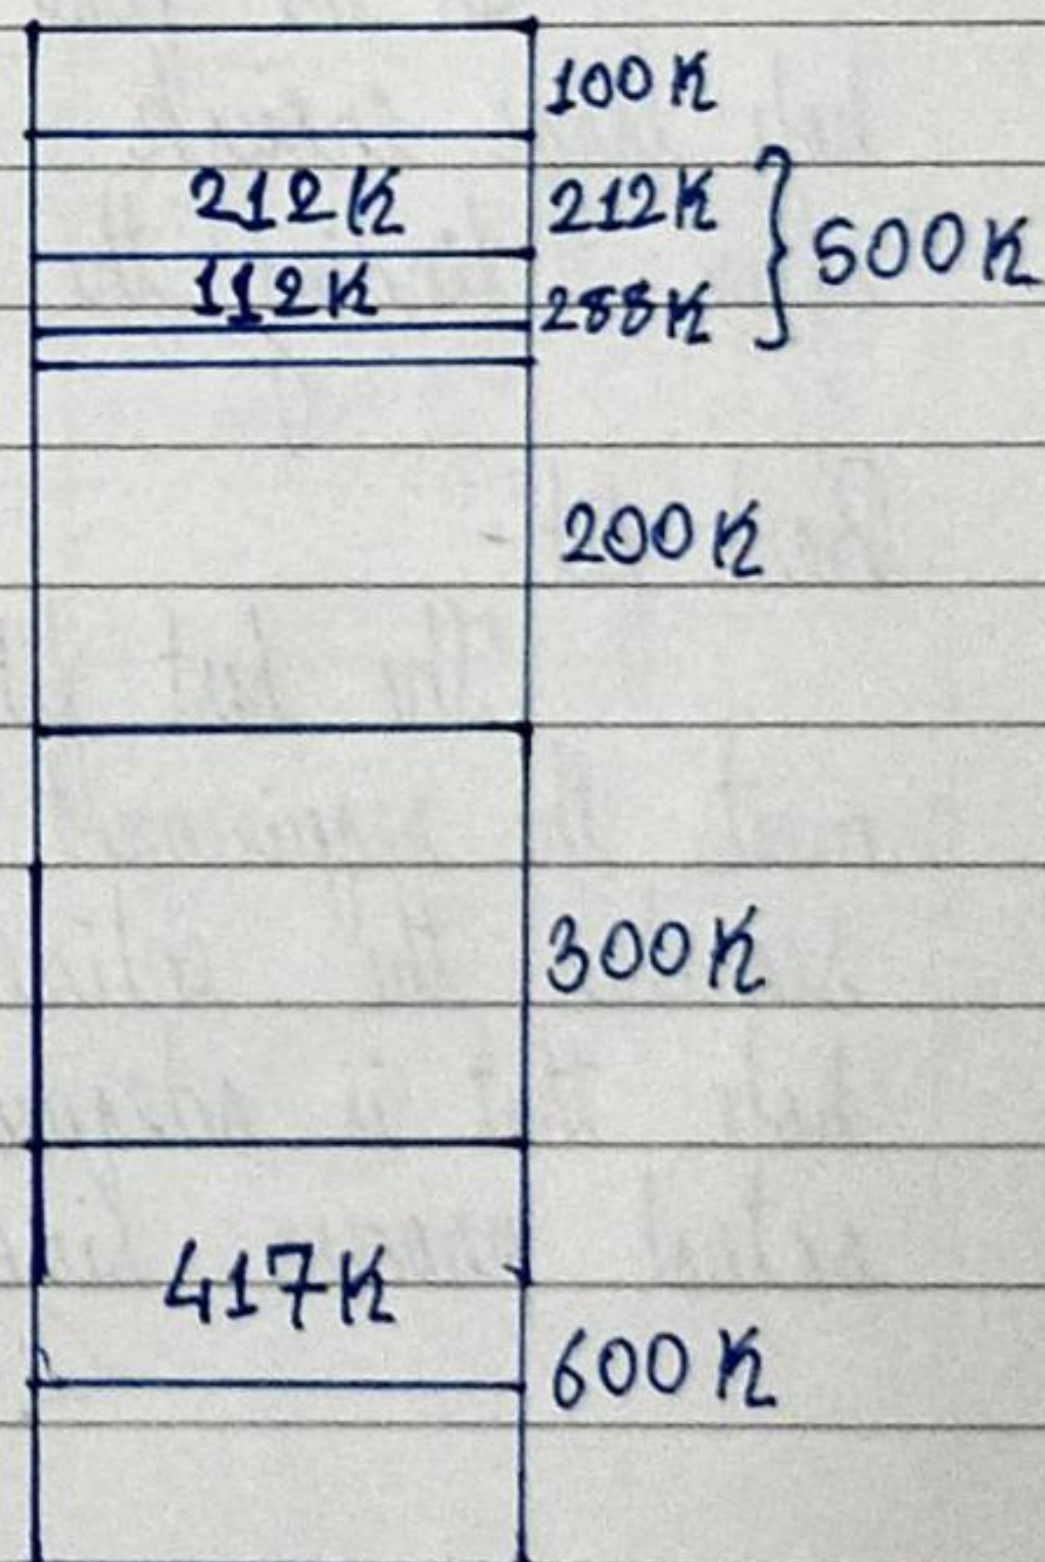 100K
212K 212K } 500K
112K 288K
200K
300K
417K
600K